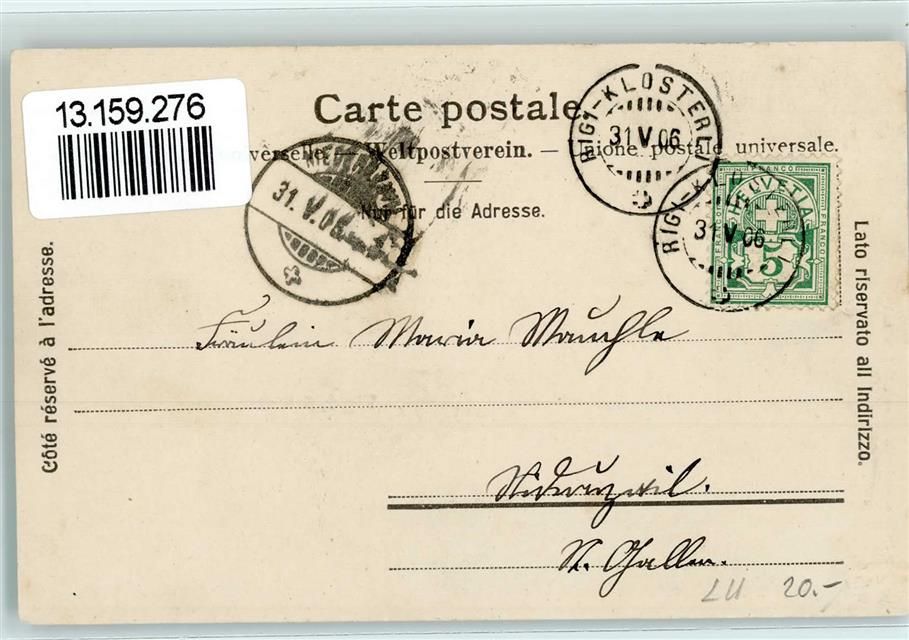 13.159.276
Carte postale.
verselle. — Weltpostverein. — Unione postale universale.
Nur für die Adresse.
RIGI-KLÖSTERLI
31.V.06
RIGI-KL
31.V.06
31.V.06
HELVETIA
FRANCO
5
Côté réservé à l'adresse.
Lato riservato all Indirizzo.
Fräulein Maria Mauchle
Niederuzwil.
St. Gallen.
LU 20.-